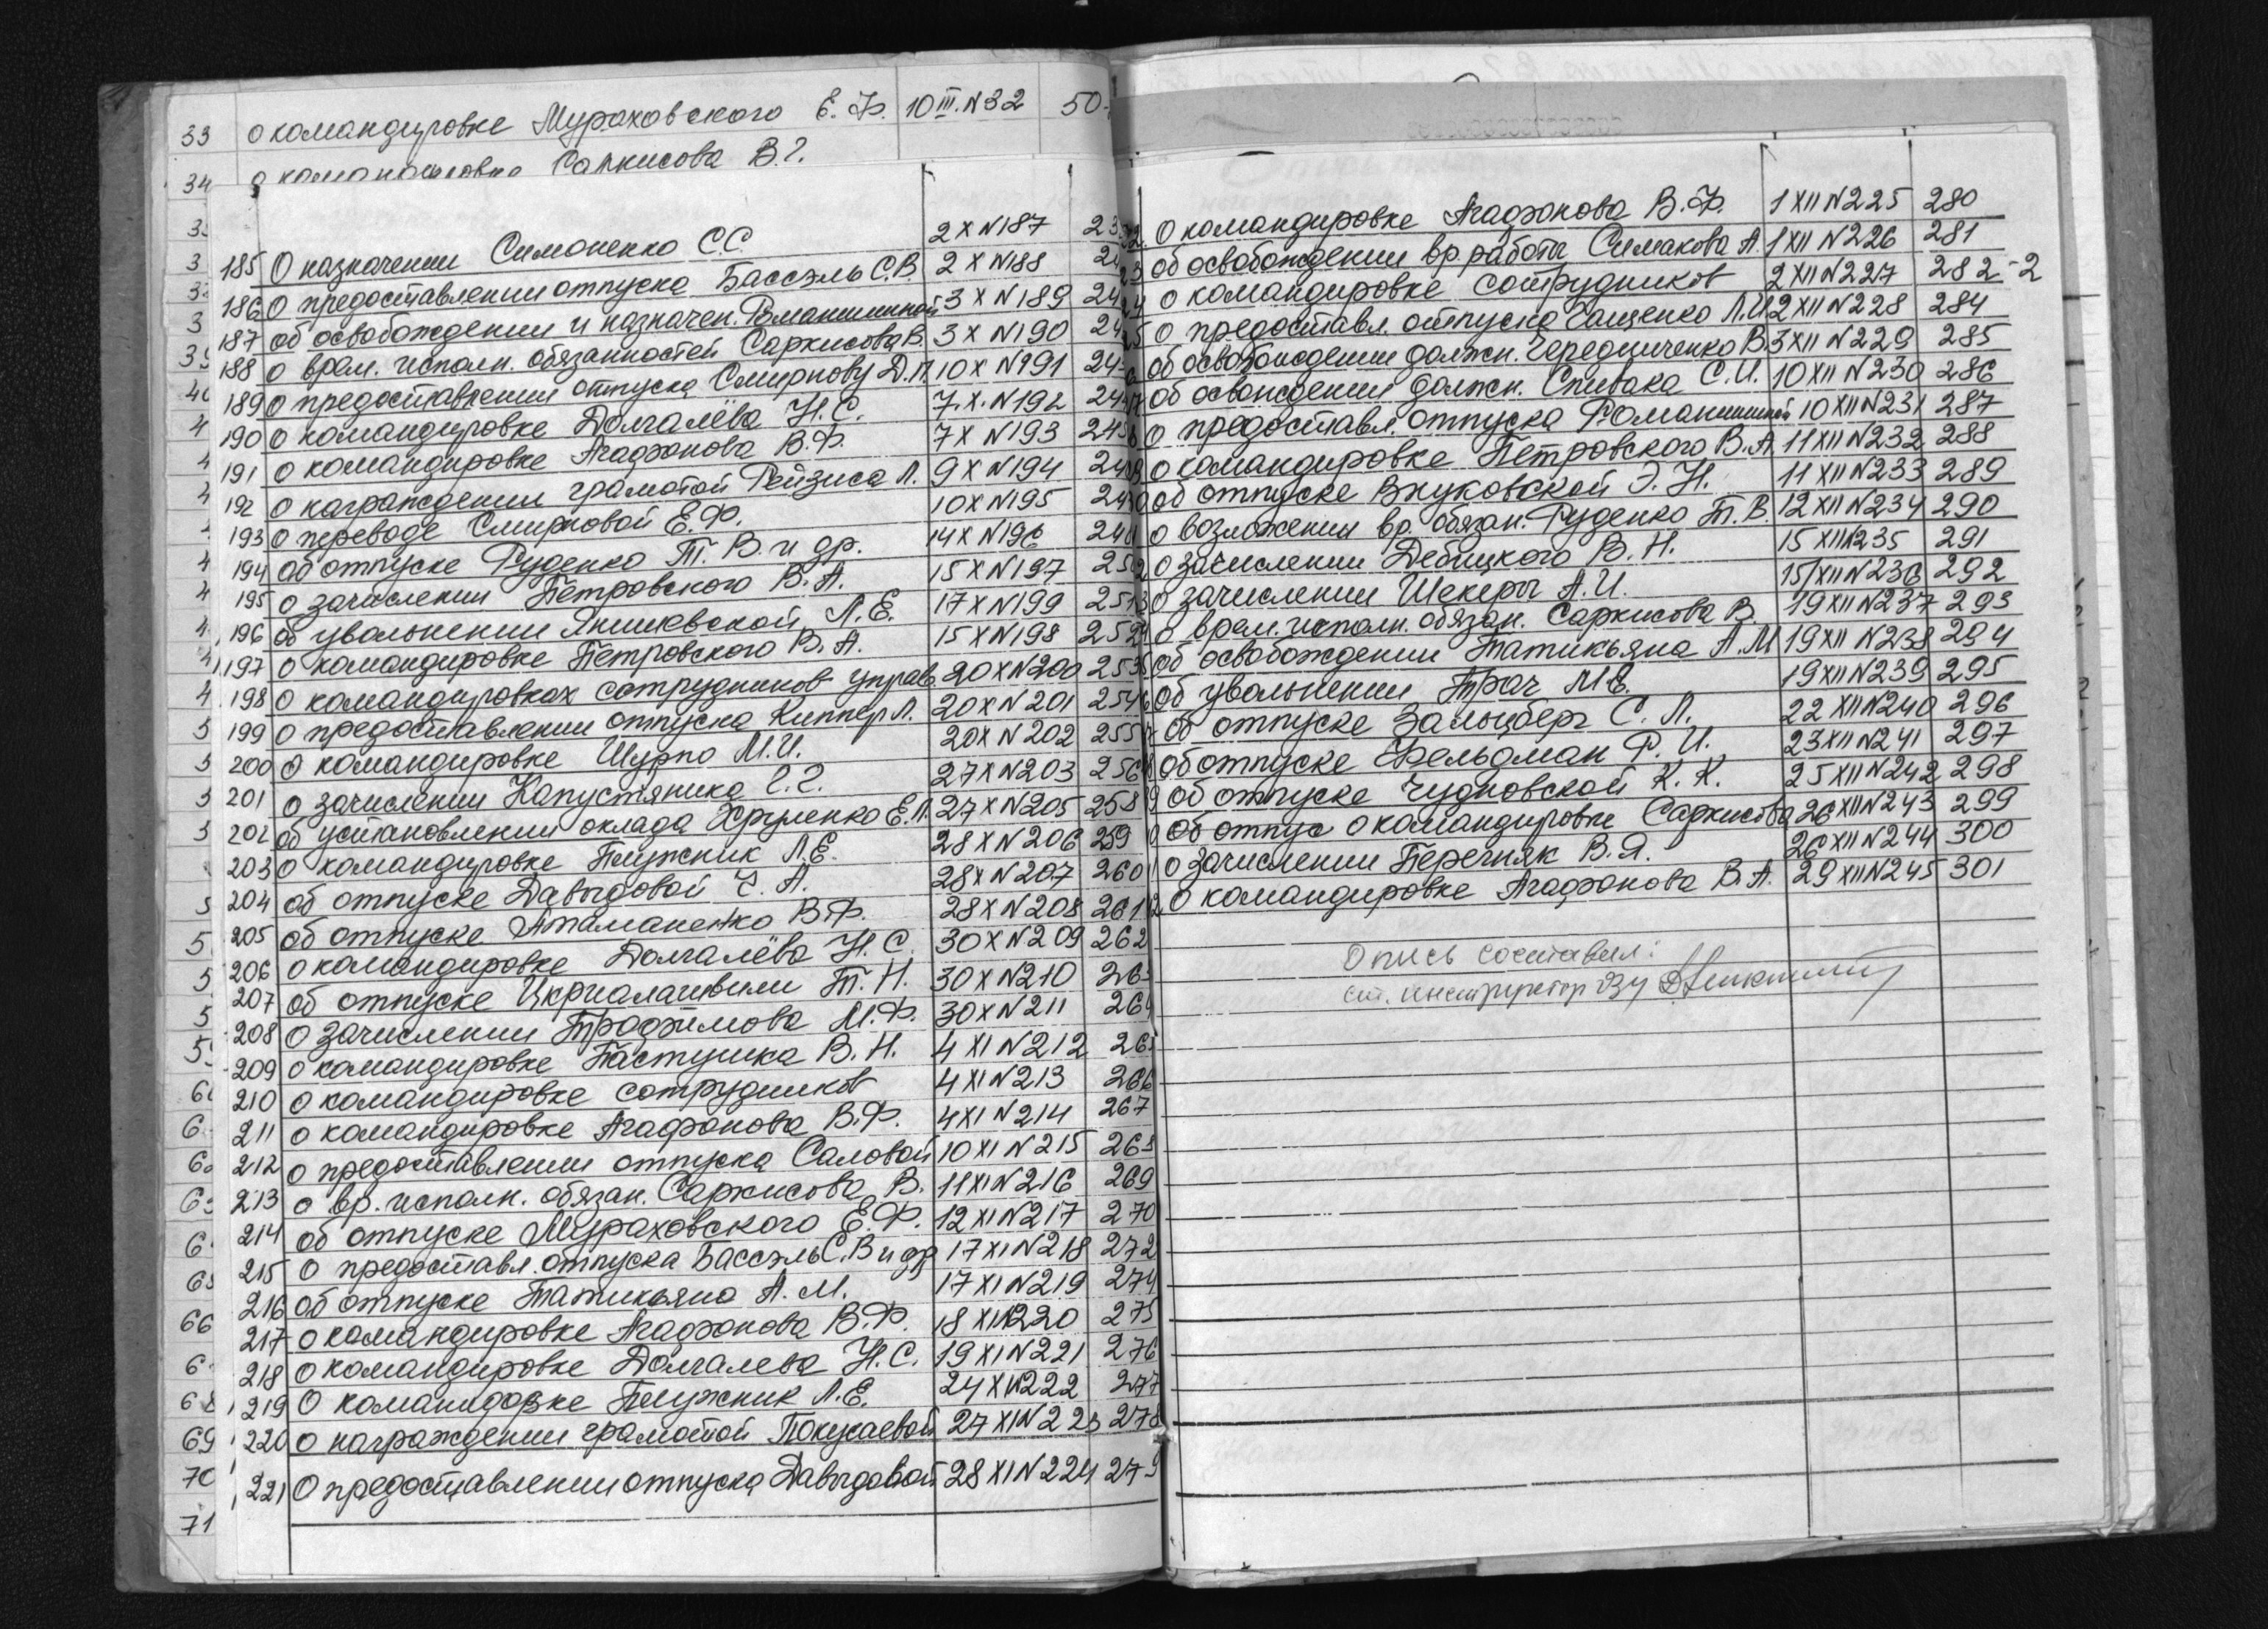 33 о командировке Мураховского Е. Ф. 10 III. N 32 50
34 о командировке Саркисова В. Г.
185 О назначении Симоненко С.С. 2 X N187
186 О предоставлении отпуска Бассэль С.В. 2 X N188
187 об освобождении и назначен. Романишиной 3 X N189
188 о врем. исполн. обязанностей Саркисова В. 3 X N190
189 о предоставлении отпуска Смирнову Д.П. 10 X N191
190 о командировке Долгалёва Н.С. 7. X. N192
191 о командировке Агафонова В.Ф. 7 X N193
192 о награждении грамотой Рейзиса Л. 9 X N194
193 о переводе Смирновой Е.Ф. 10 X N195
194 об отпуске Руденко Т.В. и др. 14 X N196
195 о зачислении Петровского В.А. 15 X N197
196 об увольнении Янишевской Л.Е. 17 X N199 251
197 о командировке Петровского В.А. 15 X N198 252
198 о командировках сотрудников управ. 20 X N200 253
199 о предоставлении отпуска Киппер Л. 20 X N201 254
200 о командировке Шурпо М.И. 20 X N202 255
201 о зачислении Капустяника Г.Г. 27 X N203 256
202 об установлении оклада Хруленко Е.Л. 27 X N205 258
203 о командировке Плужник Л.Е. 28 X N206 259
204 об отпуске Давыдовой Г.А. 28 X N207 260
205 об отпуске Атаманенко В.Ф. 28 X N208 261
206 о командировке Долгалёва Н.С. 30 X N209 262
207 об отпуске Цкриалашвили Т.Н. 30 X N210 263
208 о зачислении Трофимова М.Ф. 30 X N211 264
209 о командировке Пастушка В.Н. 4 XI N212 265
210 о командировке сотрудников 4 XI N213 266
211 о командировке Агафонова В.Ф. 4 XI N214 267
212 о предоставлении отпуска Саловой 10 XI N215 268
213 о вр. исполн. обязан. Саркисова В. 11 XI N216 269
214 об отпуске Мураховского Е.Ф. 12 XI N217 270
215 о предоставл. отпуска Бассэль С.В и др 17 XI N218 272
216 об отпуске Татикьяна А.М. 17 XI N219 274
217 о командировке Агафонова В.Ф. 18 XI N220 275
218 о командировке Долгалева Н.С. 19 XI N221 276
219 О командовке Плужник Л.Е. 24 XI N222 277
220 о награждении грамотой Покукаевой 27 XI N223 278
221 О предоставлении отпуска Давыдовой 28 XI N224 279
О командировке Агафонова В.Ф. 1 XII N225 280
об освобождении вр. работы Симакова А. 1 XII N226 281
о командировке сотрудников 2 XII N227 282-2
о предоставл. отпуска Гащенко Л.И. 2 XII N228 284
об освобождении должн. Чередниченко В. 3 XII N229 285
об освождении должн. Спивака С.И. 10 XII N230 286
о предоставл. отпуска Романишиной 10 XII N231 287
о командировке Петровского В.А 11 XII N232 288
об отпуске Внуковской Э.Н. 11 XII N233 289
о возложении вр. обязан. Руденко Т.В. 12 XII N234 290
о зачислении Дебицкого В.Н. 15 XII N235 291
о зачислении Шекеры А.И. 15/XII N236 292
о врем. исполн. обязан. Саркисова В. 19 XII N237 293
об освобождении Татикьяна А.М 19 XII N238 294
об увольнении Трач М.Е. 19 XII N239 295
об отпуске Зальцберг С.Л. 22 XII N240 296
об отпуске Фельдман Р.И. 23 XII N241 297
об отпуске Чудновской К.К. 25 XII N242 298
об отпус о командировке Саркисова 26 XII N243 299
о зачислении Перечняк В.Я. 26 XII N244 300
О командировке Агафонова В.А. 29 XII N245 301
Опись составил:
ст. инструктор